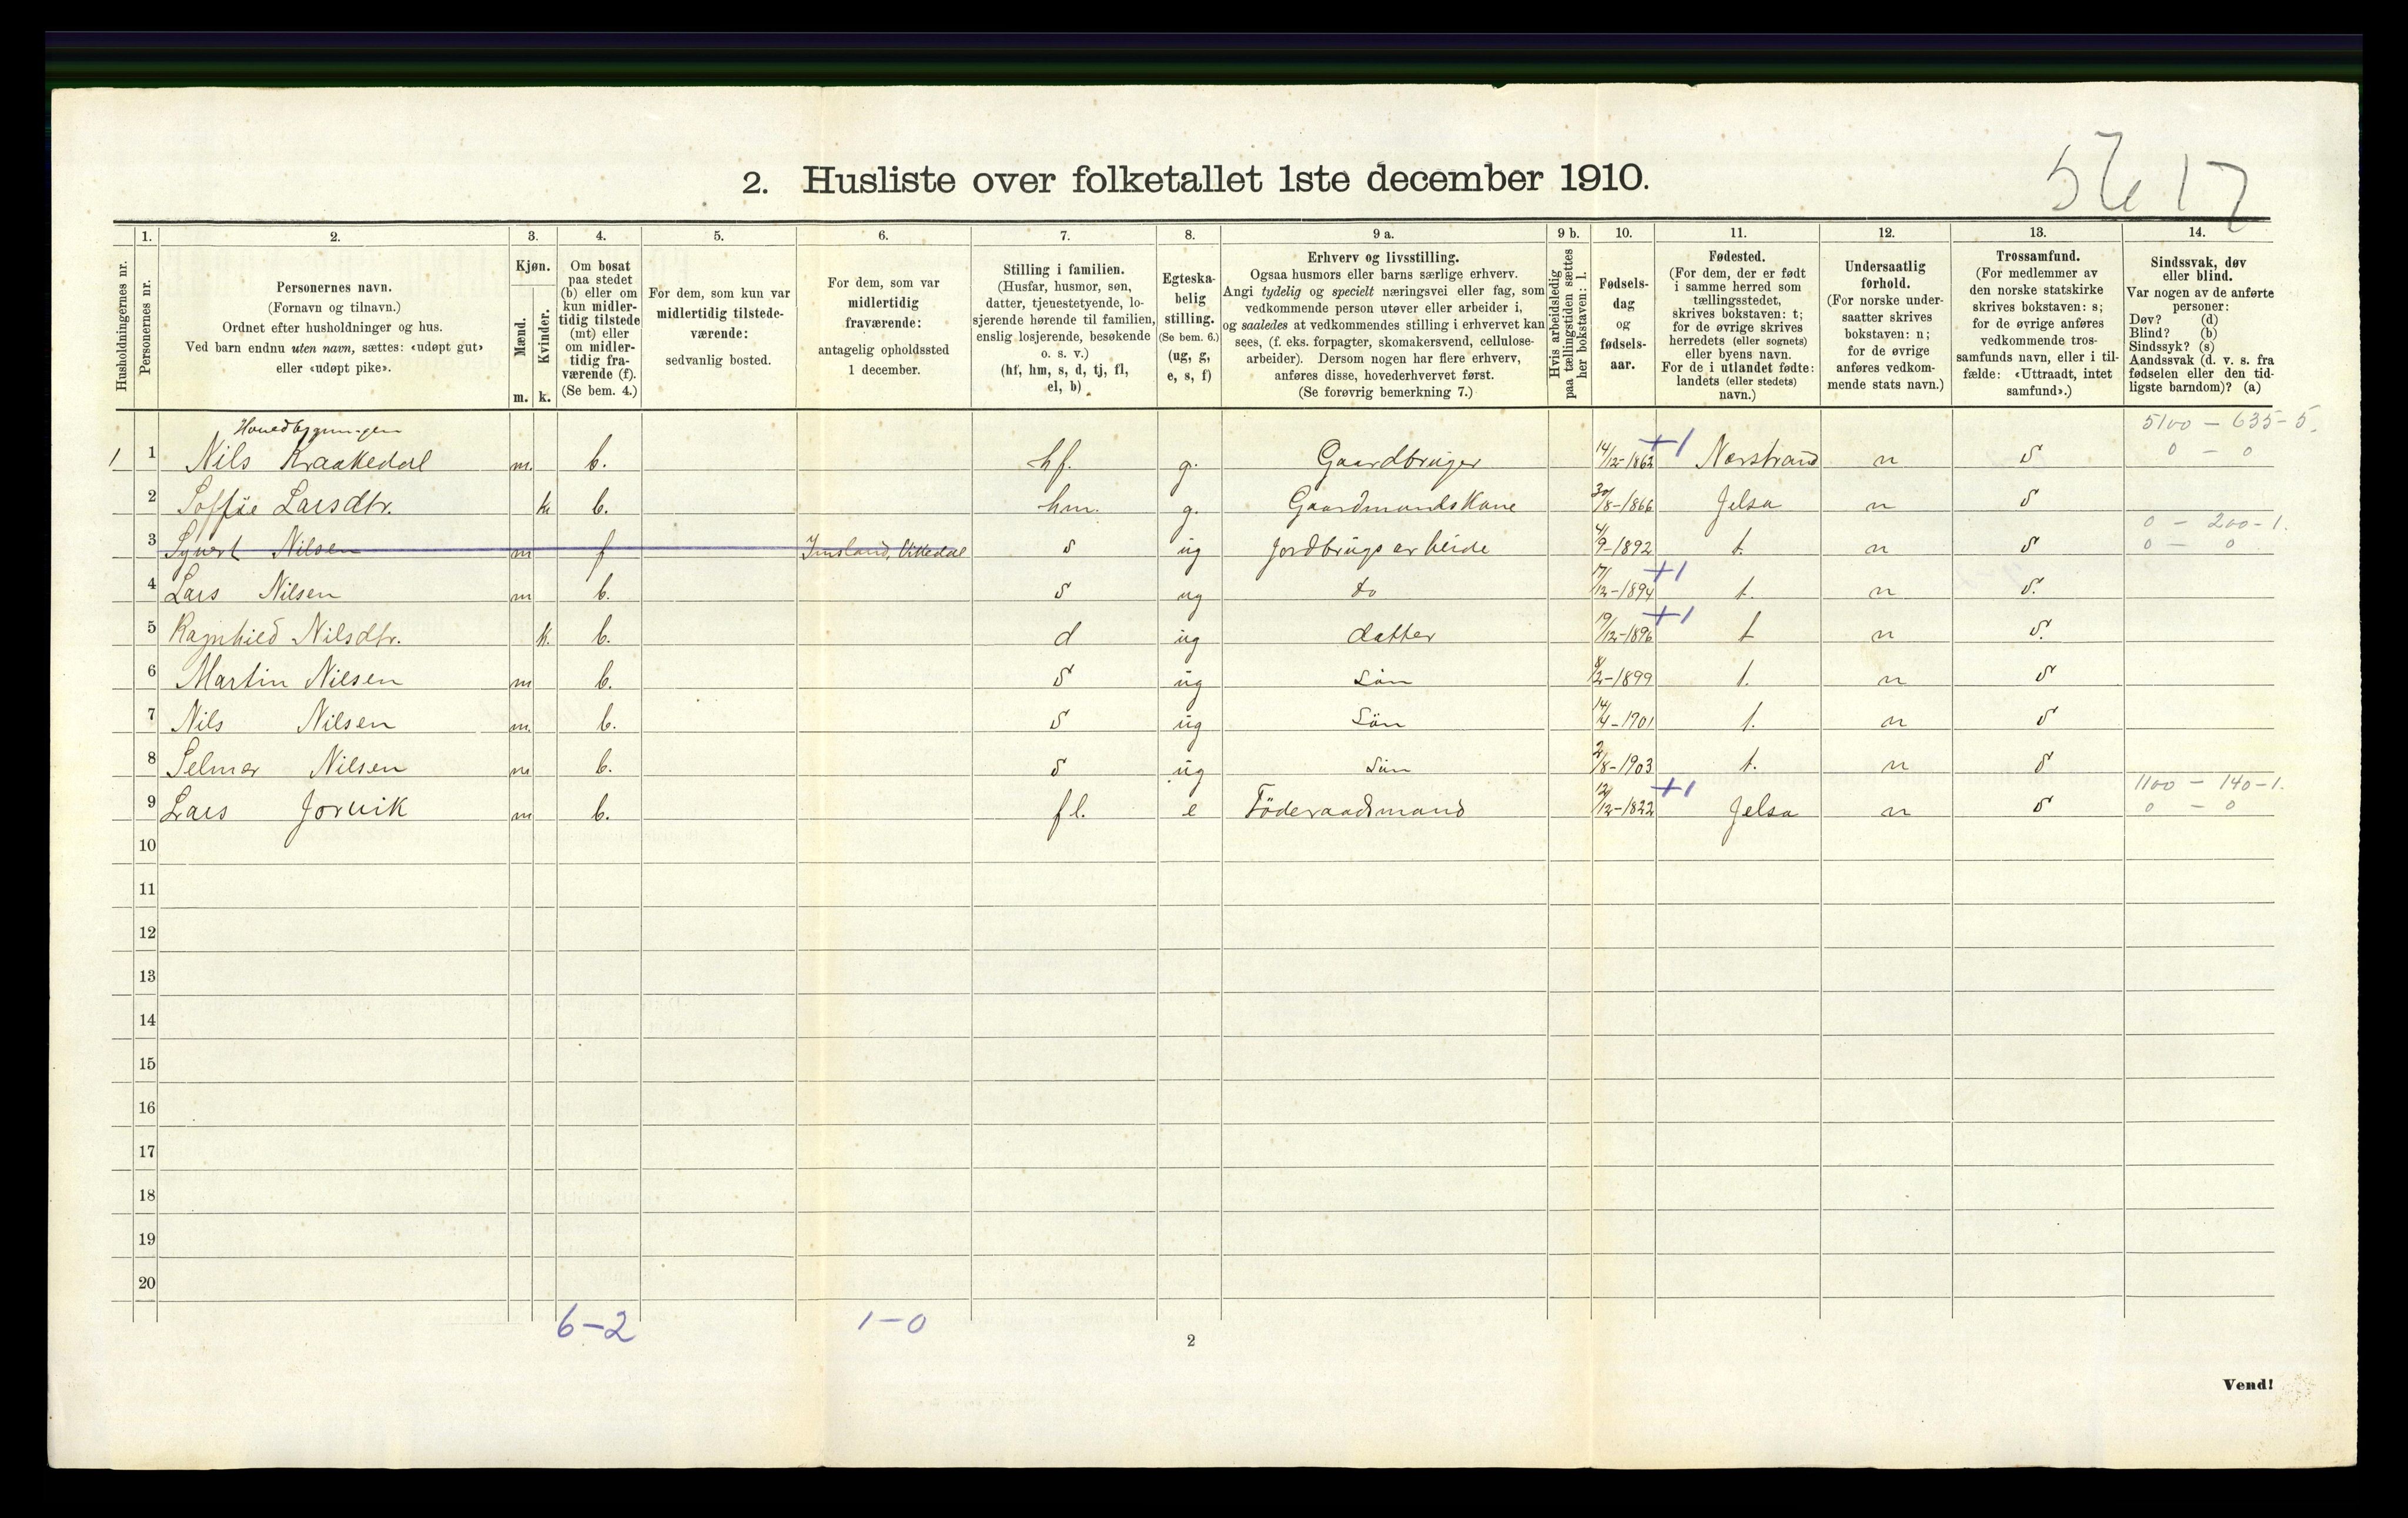 56 17
2. Husliste over folketallet 1ste december 1910.
Husholdningernes nr.
1.
Personernes nr.
2.
Personernes navn.
(Fornavn og tilnavn.)
Ordnet efter husholdninger og hus.
Ved barn endnu uten navn, sættes: «udøpt gut»
eller «udøpt pike».
3.
Kjøn.
Mænd.
Kvinder.
m. k.
4.
Om bosat
paa stedet
(b) eller om
kun midler-
tidig tilstede
(mt) eller
om midler-
tidig fra-
værende (f).
(Se bem. 4.)
5.
For dem, som kun var
midlertidig tilstede-
værende:
sedvanlig bosted.
6.
For dem, som var
midlertidig
fraværende:
antagelig opholdssted
1 december.
7.
Stilling i familien.
(Husfar, husmor, søn,
datter, tjenestetyende, lo-
sjerende hørende til familien,
enslig losjerende, besøkende
o. s. v.)
(hf, hm, s, d, tj, fl,
el, b)
8.
Egteska-
belig
stilling.
(Se bem. 6.)
(ug, g,
e, s, f)
9 a.
Erhverv og livsstilling.
Ogsaa husmors eller barns særlige erhverv.
Angi tydelig og specielt næringsvei eller fag, som
vedkommende person utøver eller arbeider i,
og saaledes at vedkommendes stilling i erhvervet kan
sees, (f. eks. forpagter, skomakersvend, cellulose-
arbeider). Dersom nogen har flere erhverv,
anføres disse, hovederhvervet først.
(Se forøvrig bemerkning 7.)
9 b.
Hvis arbeidsledig
paa tællingstiden sættes
her bokstaven: l.
10.
Fødsels-
dag
og
fødsels-
aar.
11.
Fødested.
(For dem, der er født
i samme herred som
tællingsstedet,
skrives bokstaven: t;
for de øvrige skrives
herredets (eller sognets)
eller byens navn.
For de i utlandet fødte:
landets (eller stedets)
navn.)
12.
Undersaatlig
forhold.
(For norske under-
saatter skrives
bokstaven: n;
for de øvrige
anføres vedkom-
mende stats navn.)
13.
Trossamfund.
(For medlemmer av
den norske statskirke
skrives bokstaven: s;
for de øvrige anføres
vedkommende tros-
samfunds navn, eller i til-
fælde: «Uttraadt, intet
samfund».)
14.
Sindssvak, døv
eller blind.
Var nogen av de anførte
personer:
Døv? (d)
Blind? (b)
Sindssyk? (s)
Aandssvak (d. v. s. fra
fødselen eller den tid-
ligste barndom)? (a)
Hovedbygningen
5100 - 635-5.
1 1 Nils Kraakedal m. b. hf. g. Gaardbruger 14/12-1862 +1 Nerstrand n s 0 - 0
2 Soffie Larsdtr. k b. hm. g. Gaardmandskone 30/8-1866 Jelsa n s
0 - 200-1.
3 Syvert Nilsen m f Imsland, Vikedal s ug Jordbrugsarbeide 4/9-1892 t. n s 0 - 0
4 Lars Nilsen m b. s ug do 17/12-1894 +1 t. n s.
5 Ragnhild Nilsdtr. k. b. d ug datter 19/12-1896 +1 t n s.
6 Martin Nilsen m b. s ug Sön 8/2-1899 t. n s
7 Nils Nilsen m. b. s ug Sön 14/4-1901 t. n s
8 Selmer Nilsen m b. s ug Sön 2/8-1903 t. n s
1100 - 140-1.
9 Lars Jorvik m b. fl. e Föderaadsmand 12/12-1822 +1 Jelsa n s 0 - 0
10
11
12
13
14
15
16
17
18
19
20
6-2 1-0
2
Vend!